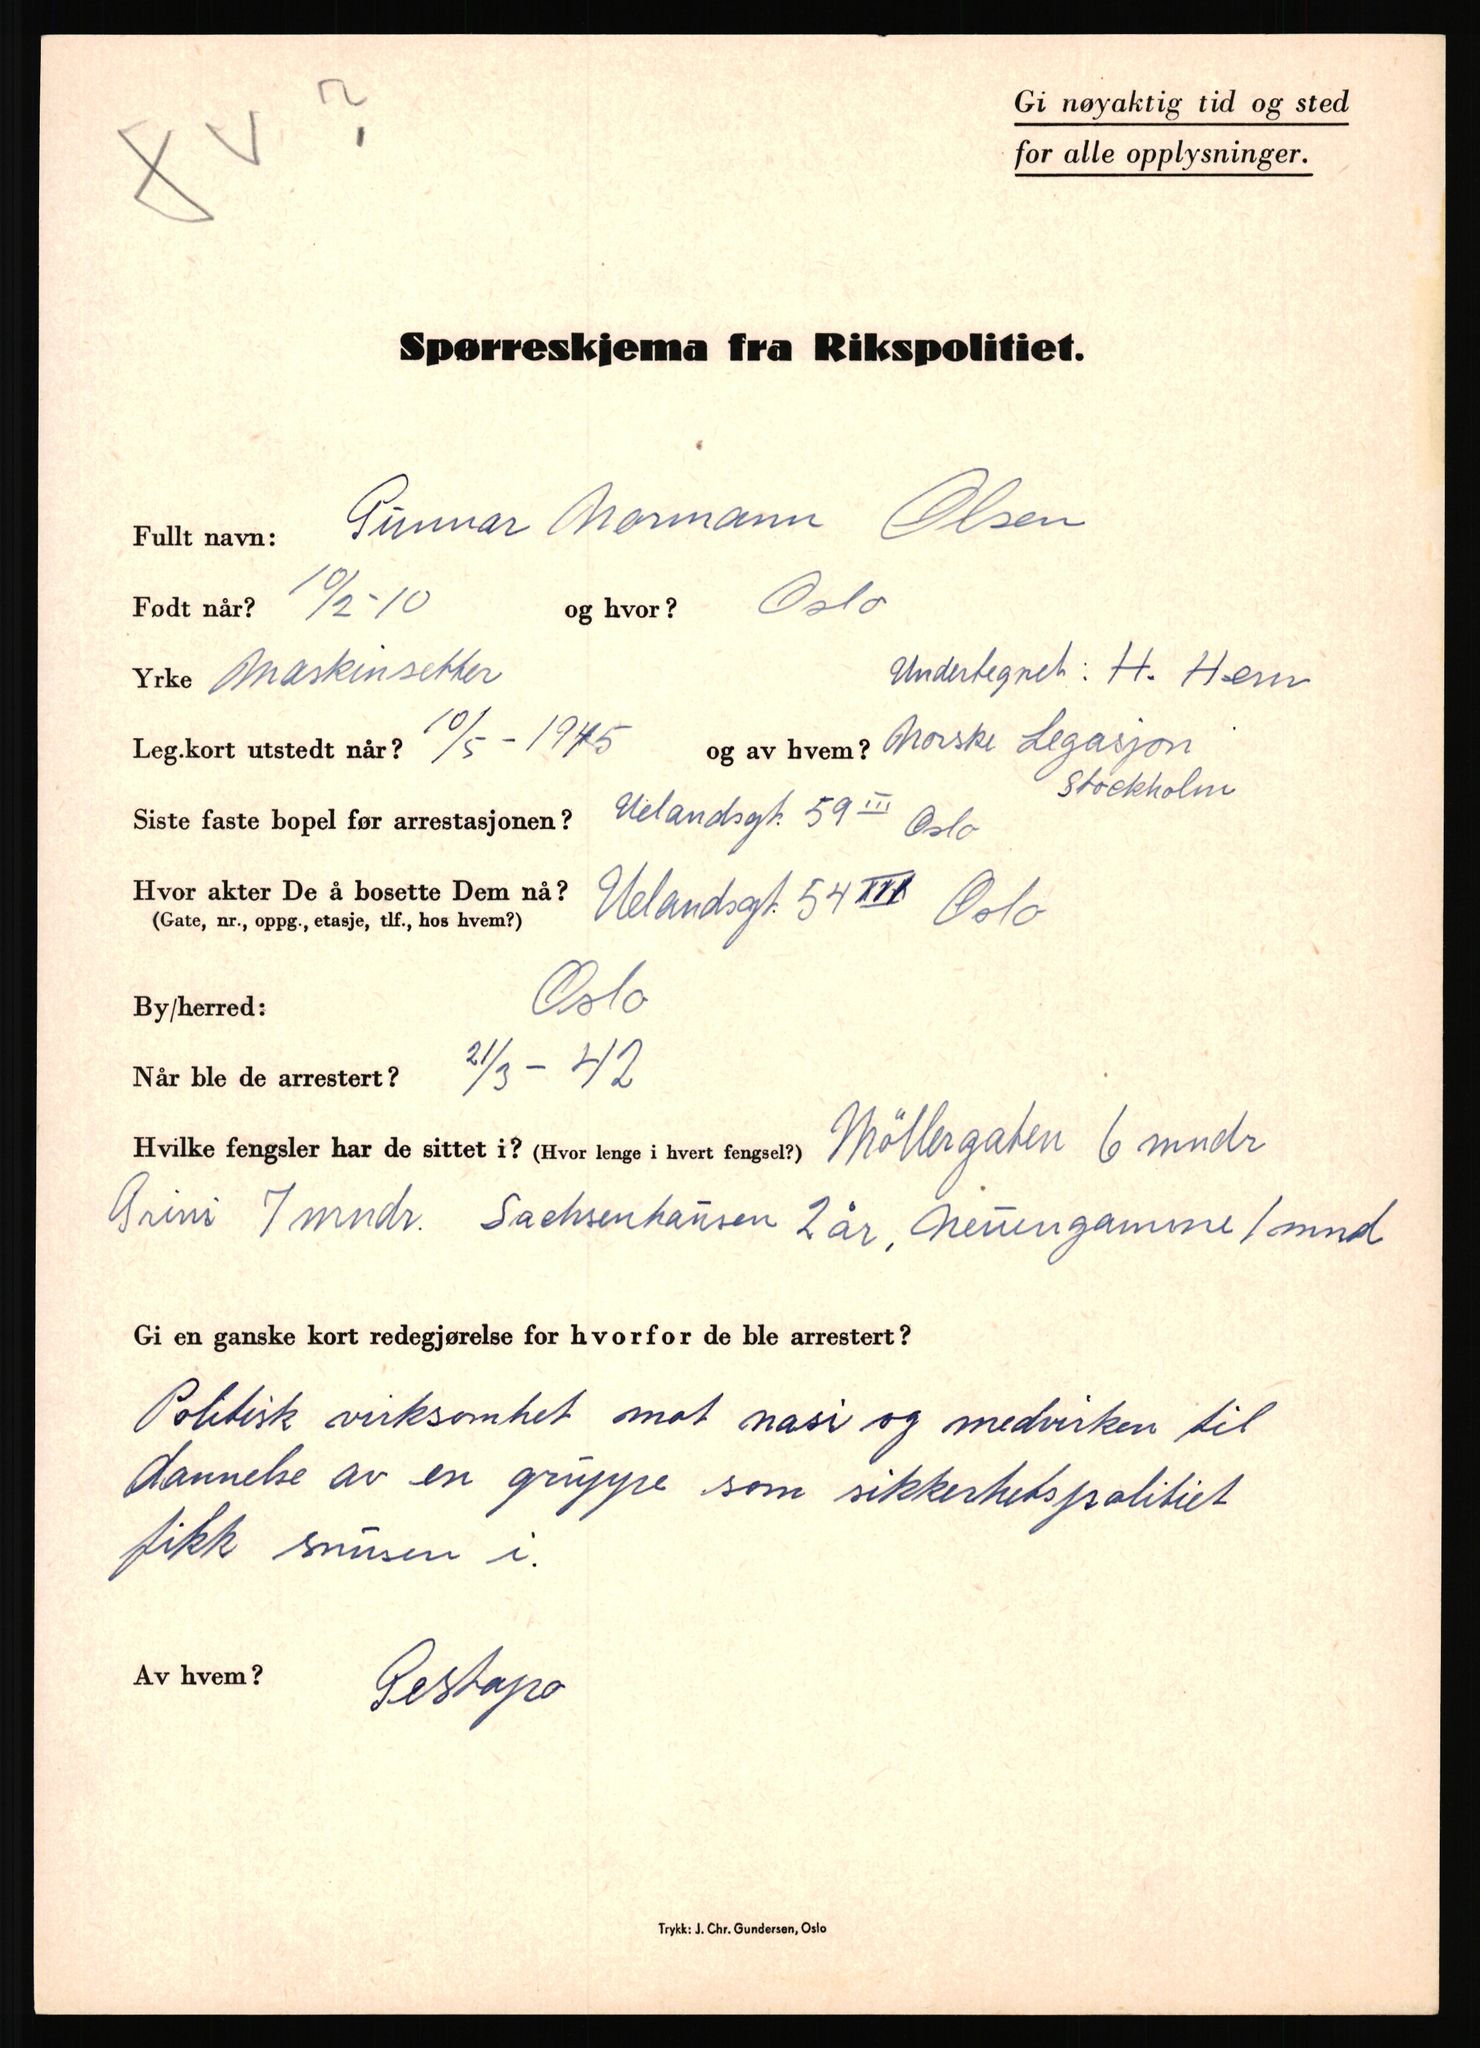 γ v ?
Gi nøyaktig tid og sted
for alle opplysninger.
Spørreskjema fra Rikspolitiet.
Fullt navn: Gunnar Normann Olsen
Født når? 10/2-10 og hvor? Oslo
Yrke Maskinsetter Undertegnet: H. Hern
Leg.kort utstedt når? 10/5-1945 og av hvem? Norske Legasjon
Stockholm
Siste faste bopel før arrestasjonen? Uelandsgt. 59 III Oslo
Hvor akter De å bosette Dem nå? Uelandsgt. 54 III Oslo
(Gate, nr., oppg., etasje, tlf., hos hvem?)
By/herred: Oslo
Når ble de arrestert? 21/3 - 42
Hvilke fengsler har de sittet i? (Hvor lenge i hvert fengsel?) Möllergaten 6 mndr
Grini 7 mndr. Sachsenhausen 2 år, Neuengamme 1 mnd
Gi en ganske kort redegjørelse for hvorfor de ble arrestert?
Politisk virksomhet mot nasi og medvirken til
dannelse av en gruppe som sikkerhetspolitiet
fikk snusen i.
Av hvem? Gestapo
Trykk: J. Chr. Gundersen, Oslo